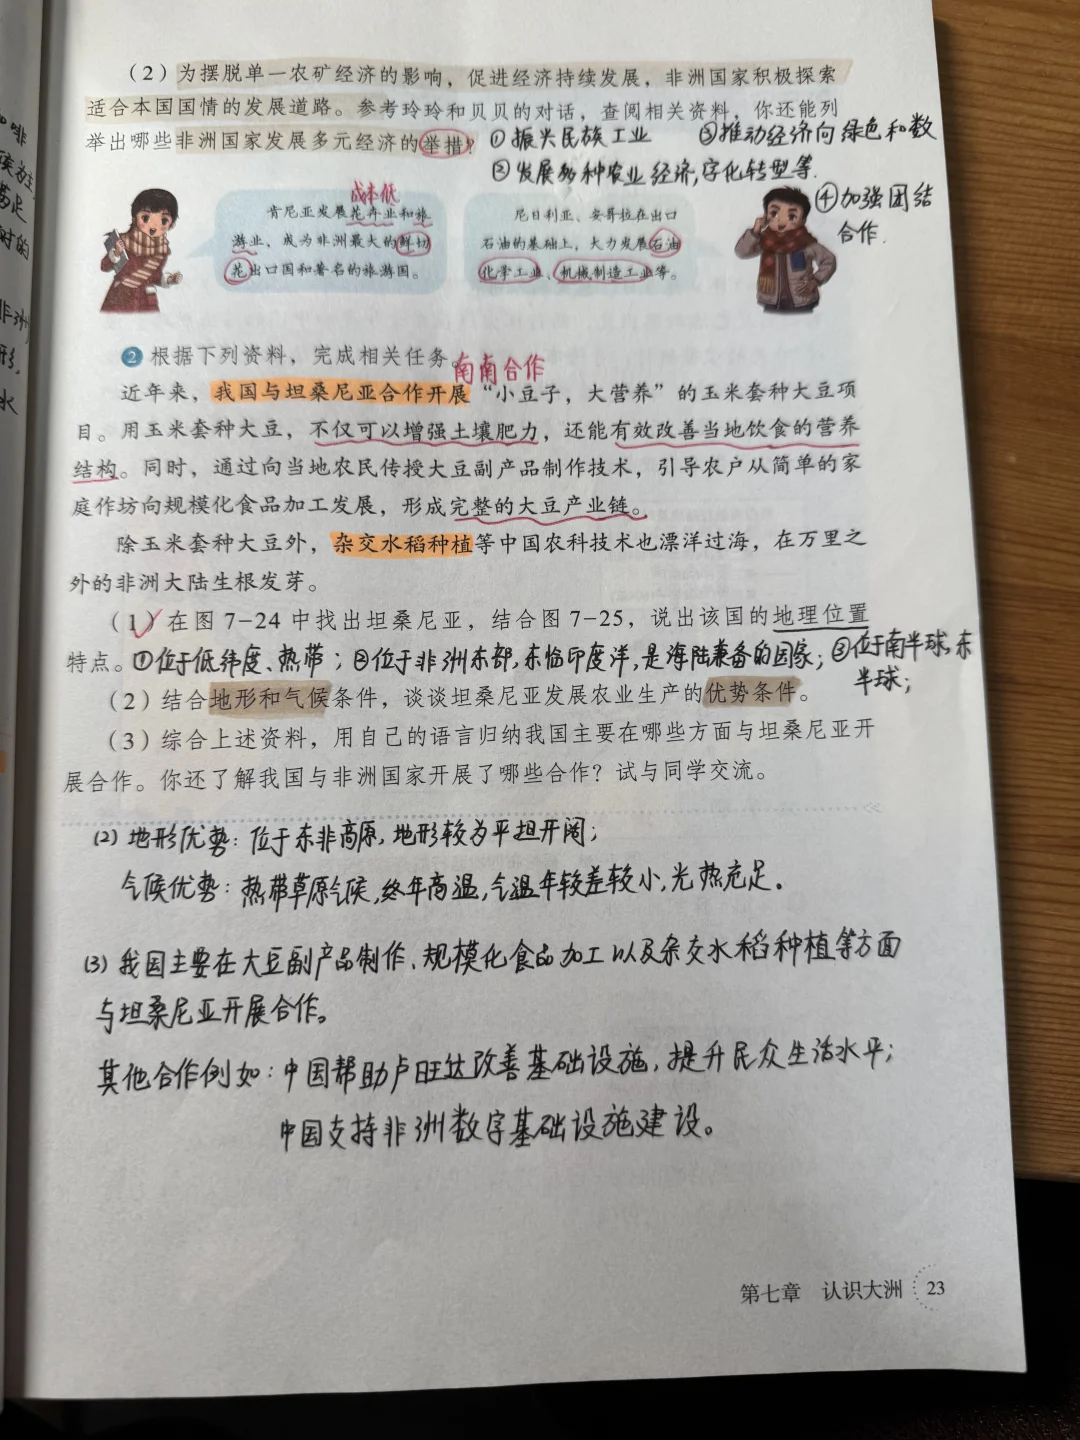 （2）为摆脱单一农矿经济的影响，促进经济持续发展，非洲国家积极探索
适合本国国情的发展道路。参考玲玲和贝贝的对话，查阅相关资料，你还能列
举出哪些非洲国家发展多元经济的举措？
①振兴民族工业 ③推动经济向绿色和数
②发展多种农业经济,字化转型等.
④加强团结
合作.
成本低
肯尼亚发展花卉业和旅
游业、成为非洲最大的鲜切
花出口国和著名的旅游国。
尼日利亚、安哥拉在出口
石油的基础上，大力发展石油
化学工业、机械制造工业等。
2 根据下列资料，完成相关任务。
南南合作
近年来，我国与坦桑尼亚合作开展“小豆子，大营养”的玉米套种大豆项
目。用玉米套种大豆，不仅可以增强土壤肥力，还能有效改善当地饮食的营养
结构。同时，通过向当地农民传授大豆副产品制作技术，引导农户从简单的家
庭作坊向规模化食品加工发展，形成完整的大豆产业链。
除玉米套种大豆外，杂交水稻种植等中国农科技术也漂洋过海，在万里之
外的非洲大陆生根发芽。
（1）在图 7-24 中找出坦桑尼亚，结合图 7-25，说出该国的地理位置
特点。①位于低纬度、热带；②位于非洲东部,东临印度洋,是海陆兼备的国家；③位于南半球,东
半球；
（2）结合地形和气候条件，谈谈坦桑尼亚发展农业生产的优势条件。
（3）综合上述资料，用自己的语言归纳我国主要在哪些方面与坦桑尼亚开
展合作。你还了解我国与非洲国家开展了哪些合作？试与同学交流。
(2) 地形优势：位于东非高原,地形较为平坦开阔；
气候优势：热带草原气候,终年高温,气温年较差较小,光热充足。
(3) 我国主要在大豆副产品制作、规模化食品加工以及杂交水稻种植等方面
与坦桑尼亚开展合作。
其他合作例如：中国帮助卢旺达改善基础设施，提升民众生活水平；
中国支持非洲数字基础设施建设。
第七章 认识大洲 23